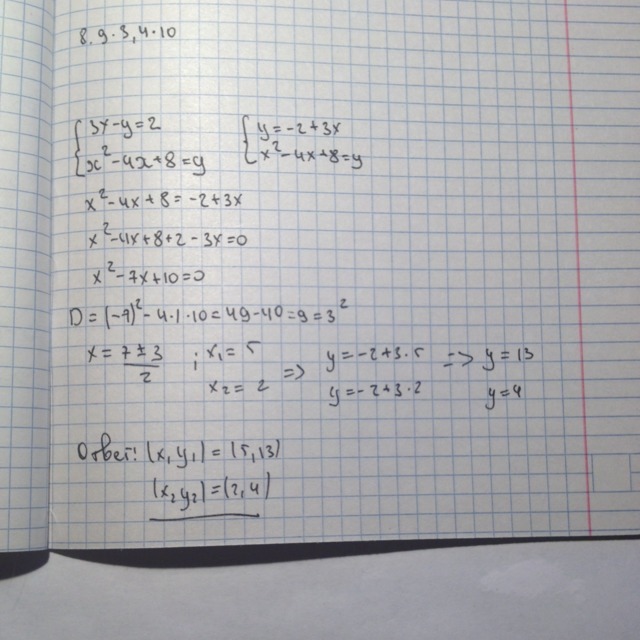 8.9.3,4.10
{3x-y=2 {y=-2+3x
{x²-4x+8=y {x²-4x+8=y
x²-4x+8=-2+3x
x²-4x+8+2-3x=0
x²-7x+10=0
D=(-7)²-4·1·10=49-40=9=3²
x=7±3/2 ; x₁=5 => y=-2+3·5 => y=13
x₂=2 y=-2+3·2 y=4
Ответ: (x,y₁)=(5,13)
(x₂y₂)=(2,4)